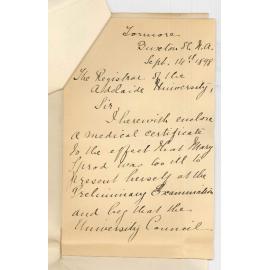 Tormore
Buxton St. N.A.
Sept. 14th 1898
The Registrar of the
Adelaide University,
Sir,
I herewith enclose
a medical certificate
to the effect that Mary
Sprod was too ill to
present herself at the
Preliminary Examination
and beg that the
University Council